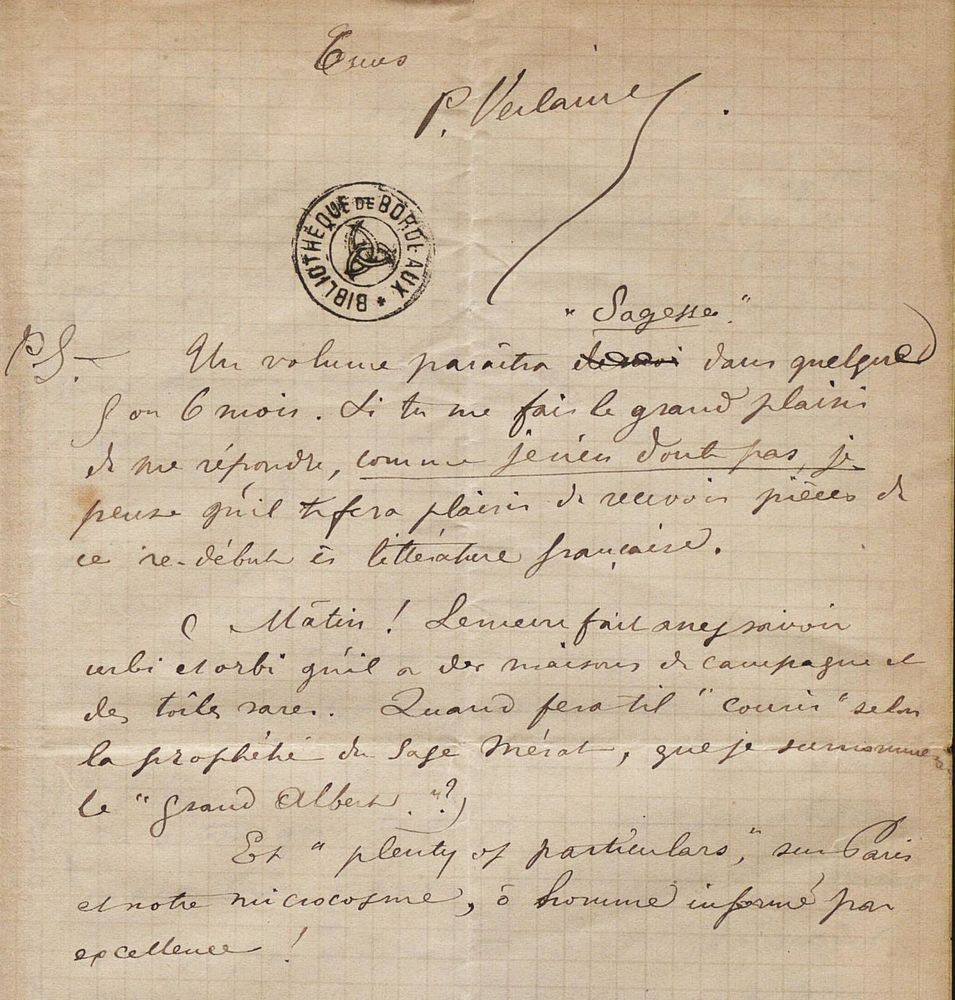 Tuus
P. Verlaine.
BIBLIOTHÈQUE DE BORDEAUX *
"Sagesse."
PS. — Un volume paraîtra dans quelques
5 ou 6 mois. Si tu me fais le grand plaisir
de me répondre, comme je n'en doute pas, je
pense qu'il te fera plaisir de recevoir pièces de
ce re-début ès littérature française.
( Mâtin ! Lemerre fait assez savoir
urbi et orbi qu'il a des maisons de campagne et
des toiles rares. Quand fera t il "courir" selon
la prophétie du Sage Mérat, que je surnomme
le "grand Albert."?)
Et "plenty of particulars", sur Paris
et notre microcosme, ô homme informé par
excellence !